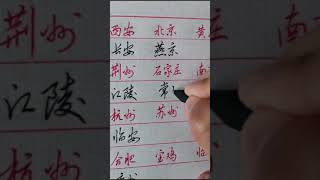 荆州
西安 北京 黄
长安 燕京
荆州 石家庄 南
江陵 常
杭州 苏州
临安
合肥 宝鸡 临